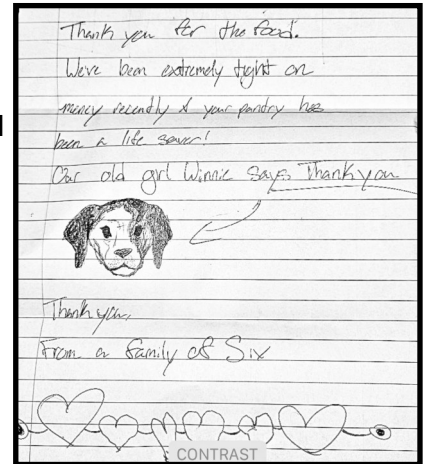 Thank you for the food.
We've been extremely tight on
money recently & your pantry has
been a life saver!
Our old girl Winnie says Thank you
Thank you,
From a family of Six
CONTRAST